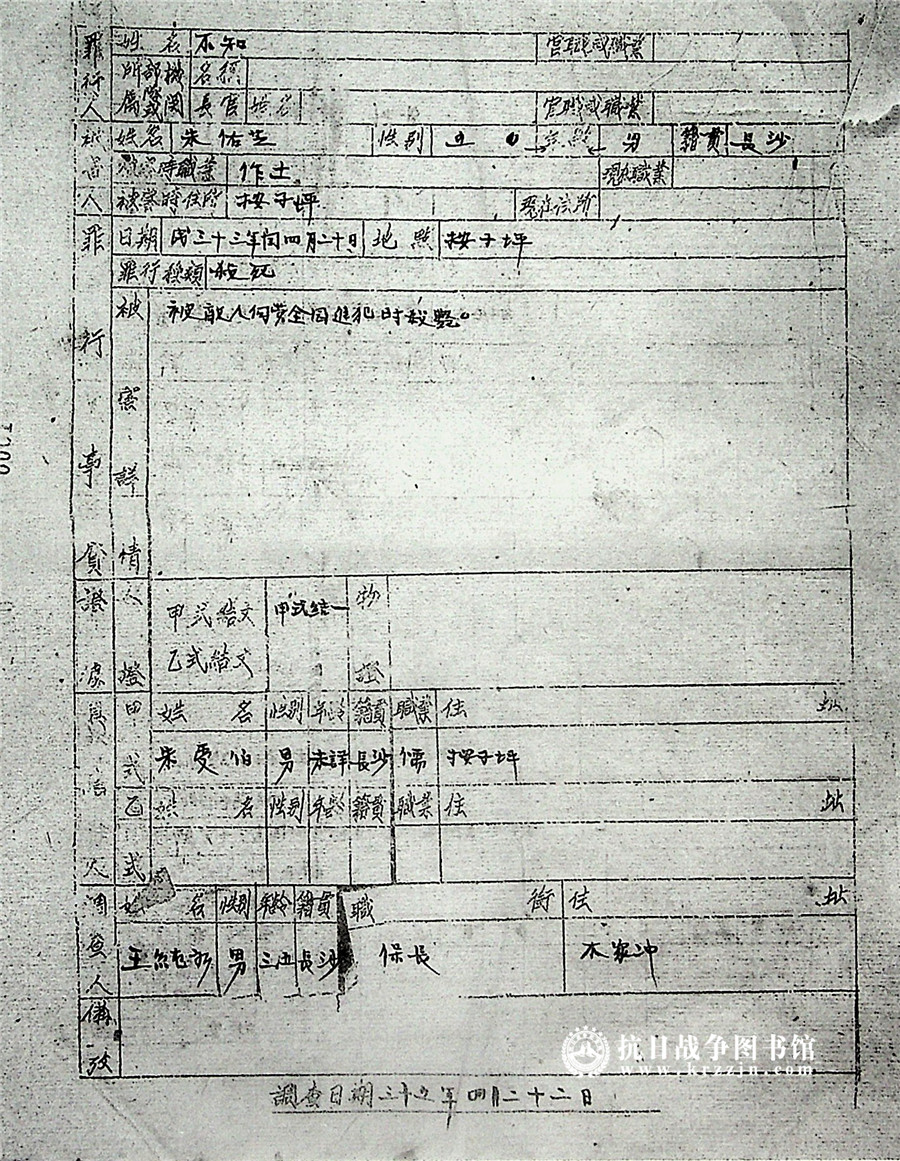 罪行人 姓名 不知 官職或職業
所屬部隊機關 名稱
長官 姓名 官職或職業
被害人 姓名 朱佑生 性別 五〇 年齡 男 籍貫 長沙
被害時職業 作土 現在職業
被害時住所 按子坪 現在住所
罪行事實 日期 民三十三年閏四月二十日 地點 按子坪
罪行種類 殺死
被害詳情 被敵人向营全团進犯时殺斃。
證據 人證 甲式結文 甲式結一 物證
乙式結文
具結人 甲式 姓名 性別 年齡 籍貫 職業 住址
朱受伯 男 未詳 長沙 儒 按子坪
乙式 姓名 性別 年齡 籍貫 職業 住址
調查人 姓名 性別 年齡 籍貫 職銜 住址
王 男 三五 長沙 保長 木家冲
備攷
抗日战争图书馆
www.krzzjn.com
調查日期三十五年四月二十二日